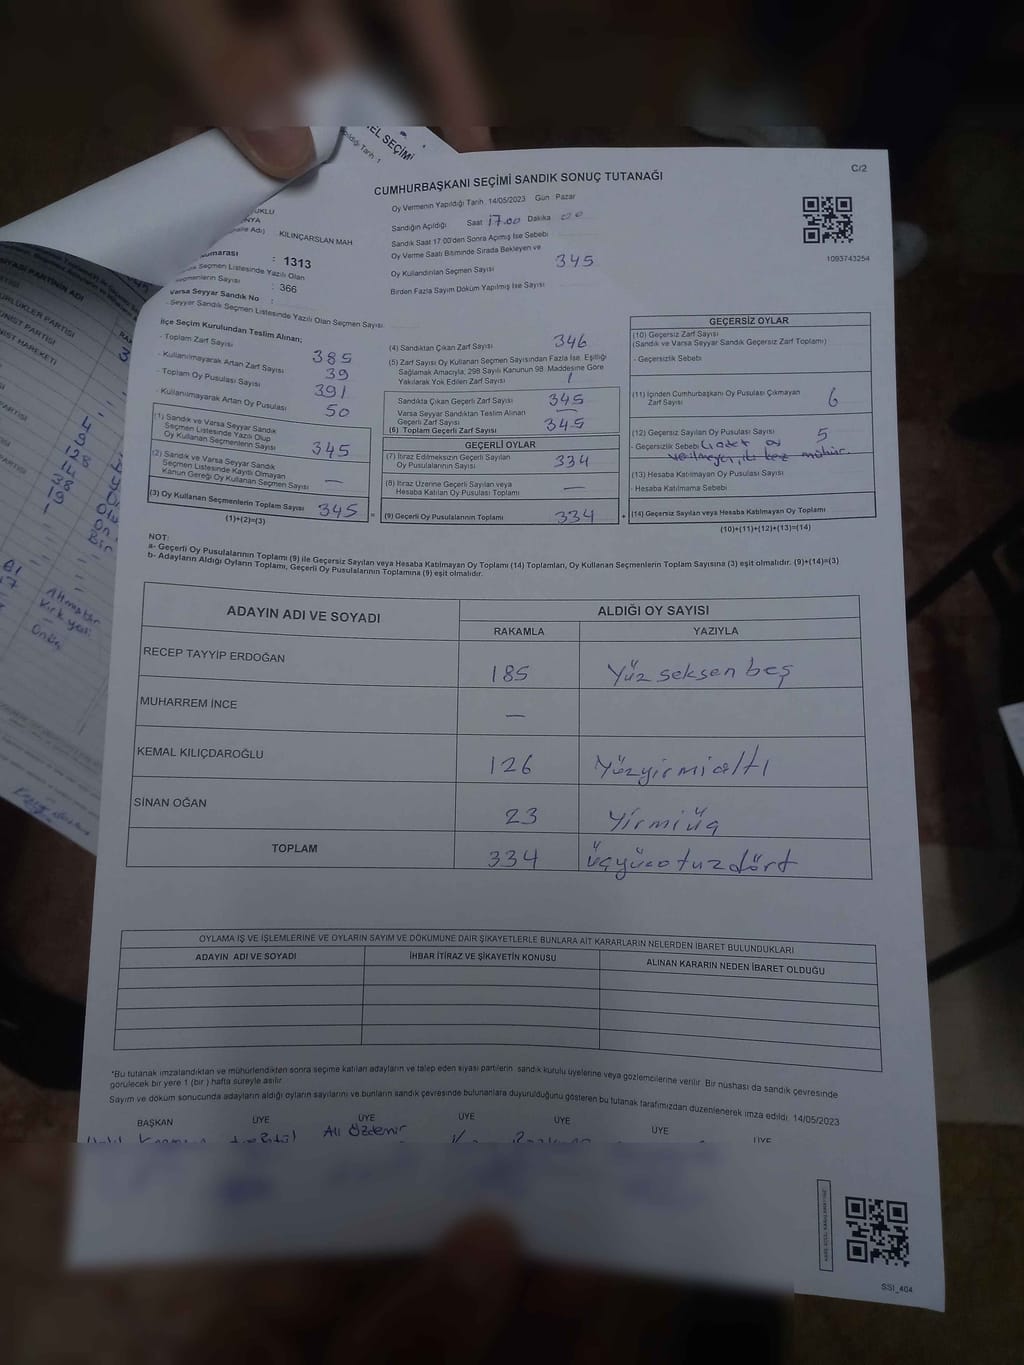 EL SEÇİMİ
CUMHURBAŞKANI SEÇİMİ SANDIK SONUÇ TUTANAĞI
C/2
Oy Vermenin Yapıldığı Tarih 14/05/2023 Gün Pazar
Sandığın Açıldığı Saat 17.00 Dakika 00
Sandık Saat 17:00'den Sonra Açımış İse Sebebi
Oy Verme Saati Bitiminde Sırada Bekleyen ve
Oy Kullandırılan Seçmen Sayısı 345
Birden Fazla Sayım Döküm Yapılmış İse Sayısı
KILINÇARSLAN MAH
: 1313
Seçmen Listesinde Yazılı Olan
: 366
Varsa Seyyar Sandık No :
- Seyyar Sandık Seçmen Listesinde Yazılı Olan Seçmen Sayısı
1093743254
İlçe Seçim Kurulundan Teslim Alınan;
- Toplam Zarf Sayısı 385
- Kullanılmayarak Artan Zarf Sayısı 39
- Toplam Oy Pusulası Sayısı 391
- Kullanılmayarak Artan Oy Pusulası 50
(1) Sandık ve Varsa Seyyar Sandık
Seçmen Listesinde Yazılı Olup
Oy Kullanan Seçmenlerin Sayısı 345
(2) Sandık ve Varsa Seyyar Sandık
Seçmen Listesinde Kayıtlı Olmayan
Kanun Gereği Oy Kullanan Seçmen Sayısı —
(3) Oy Kullanan Seçmenlerin Toplam Sayısı 345 =
(1)+(2)=(3)
(4) Sandıktan Çıkan Zarf Sayısı 346
(5) Zarf Sayısı Oy Kullanan Seçmen Sayısından Fazla İse, Eşitliği
Sağlamak Amacıyla; 298 Sayılı Kanunun 98. Maddesine Göre
Yakılarak Yok Edilen Zarf Sayısı 1
Sandıkta Çıkan Geçerli Zarf Sayısı 345
Varsa Seyyar Sandıktan Teslim Alınan
Geçerli Zarf Sayısı —
(6) Toplam Geçerli Zarf Sayısı 345
GEÇERLİ OYLAR
(7) İtiraz Edilmeksizin Geçerli Sayılan
Oy Pusulalarının Sayısı 334
(8) İtiraz Üzerine Geçerli Sayılan veya
Hesaba Katılan Oy Pusulası Toplamı —
(9) Geçerli Oy Pusulalarının Toplamı 334 +
GEÇERSİZ OYLAR
(10) Geçersiz Zarf Sayısı
(Sandık ve Varsa Seyyar Sandık Geçersiz Zarf Toplamı)
- Geçersizlik Sebebi
(11) İçinden Cumhurbaşkanı Oy Pusulası Çıkmayan
Zarf Sayısı 6
(12) Geçersiz Sayılan Oy Pusulası Sayısı 5
- Geçersizlik Sebebi
iki kez mühür.
(13) Hesaba Katılmayan Oy Pusulası Sayısı
- Hesaba Katılmama Sebebi
(14) Geçersiz Sayılan veya Hesaba Katılmayan Oy Toplamı
(10)+(11)+(12)+(13)=(14)
NOT:
a- Geçerli Oy Pusulalarının Toplamı (9) ile Geçersiz Sayılan veya Hesaba Katılmayan Oy Toplamı (14) Toplamları, Oy Kullanan Seçmenlerin Toplam Sayısına (3) eşit olmalıdır. (9)+(14)=(3)
b- Adayların Aldığı Oyların Toplamı, Geçerli Oy Pusulalarının Toplamına (9) eşit olmalıdır.
ADAYIN ADI VE SOYADI ALDIĞI OY SAYISI
RAKAMLA YAZIYLA
RECEP TAYYİP ERDOĞAN 185 Yüz seksen beş
MUHARREM İNCE —
KEMAL KILIÇDAROĞLU 126 Yüzyirmialtı
SİNAN OĞAN 23 Yirmiüç
TOPLAM 334 üçyüzotuzdört
OYLAMA İŞ VE İŞLEMLERİNE VE OYLARIN SAYIM VE DÖKÜMÜNE DAİR ŞİKAYETLERLE BUNLARA AİT KARARLARIN NELERDEN İBARET BULUNDUKLARI
ADAYIN ADI VE SOYADI İHBAR İTİRAZ VE ŞİKAYETİN KONUSU ALINAN KARARIN NEDEN İBARET OLDUĞU
*Bu tutanak imzalandıktan ve mühürlendikten sonra seçime katılan adayların ve talep eden siyasi partilerin sandık kurulu üyelerine veya gözlemcilerine verilir. Bir nushası da sandık çevresinde
görülecek bir yere 1 (bir) hafta süreyle asılır
Sayım ve döküm sonucunda adayların aldığı oyların sayılarını ve bunların sandık çevresinde bulunanlara duyurulduğunu gösteren bu tutanak tarafımızdan düzenlenerek imza edildi. 14/05/2023
BAŞKAN ÜYE ÜYE ÜYE ÜYE ÜYE ÜYE
Ali Özdemir
SS1_404